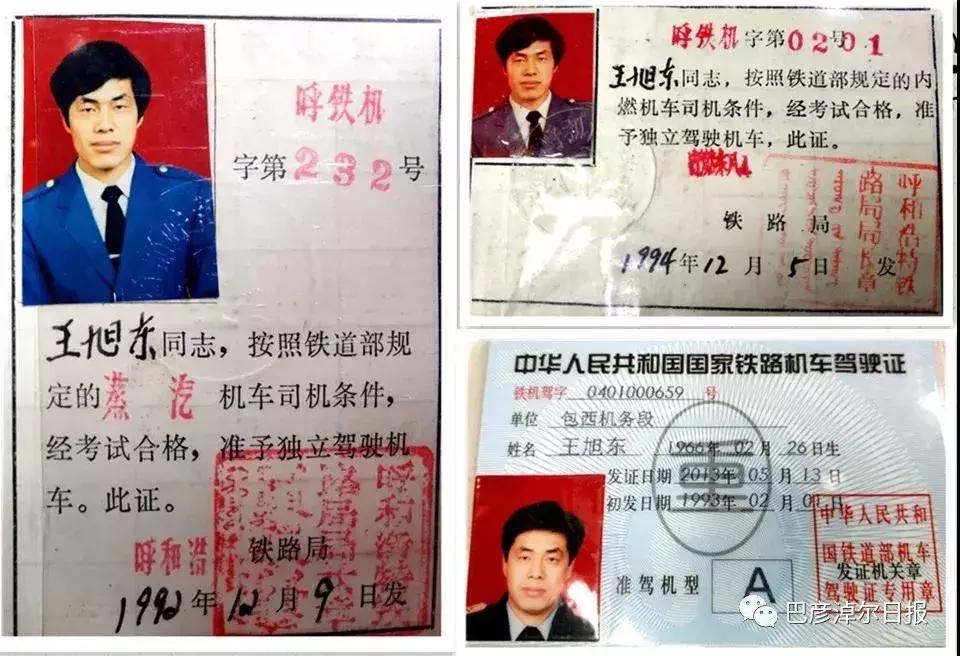 呼铁机
字第232号
王旭东同志，按照铁道部规
定的蒸汽机车司机条件，
经考试合格，准予独立驾驶机
车。此证。
呼和浩 铁路局
1992年12月9日发
呼铁机字第0201号
王旭东同志，按照铁道部规定的内
燃机车司机条件，经考试合格，准
予独立驾驶机车，此证。
铁路局
1994年12月5日发
呼和浩特铁
路局
章
中华人民共和国国家铁路机车驾驶证
铁机驾字 0401000659 号
单位 包西机务段
姓名 王旭东 1966年02月26日生
发证日期 2013年05月13日
初发日期 1993年02月01日
准驾机型 A
中华人民共和
国铁道部机车
发证机关章
驾驶证专用章
巴彦淖尔日报